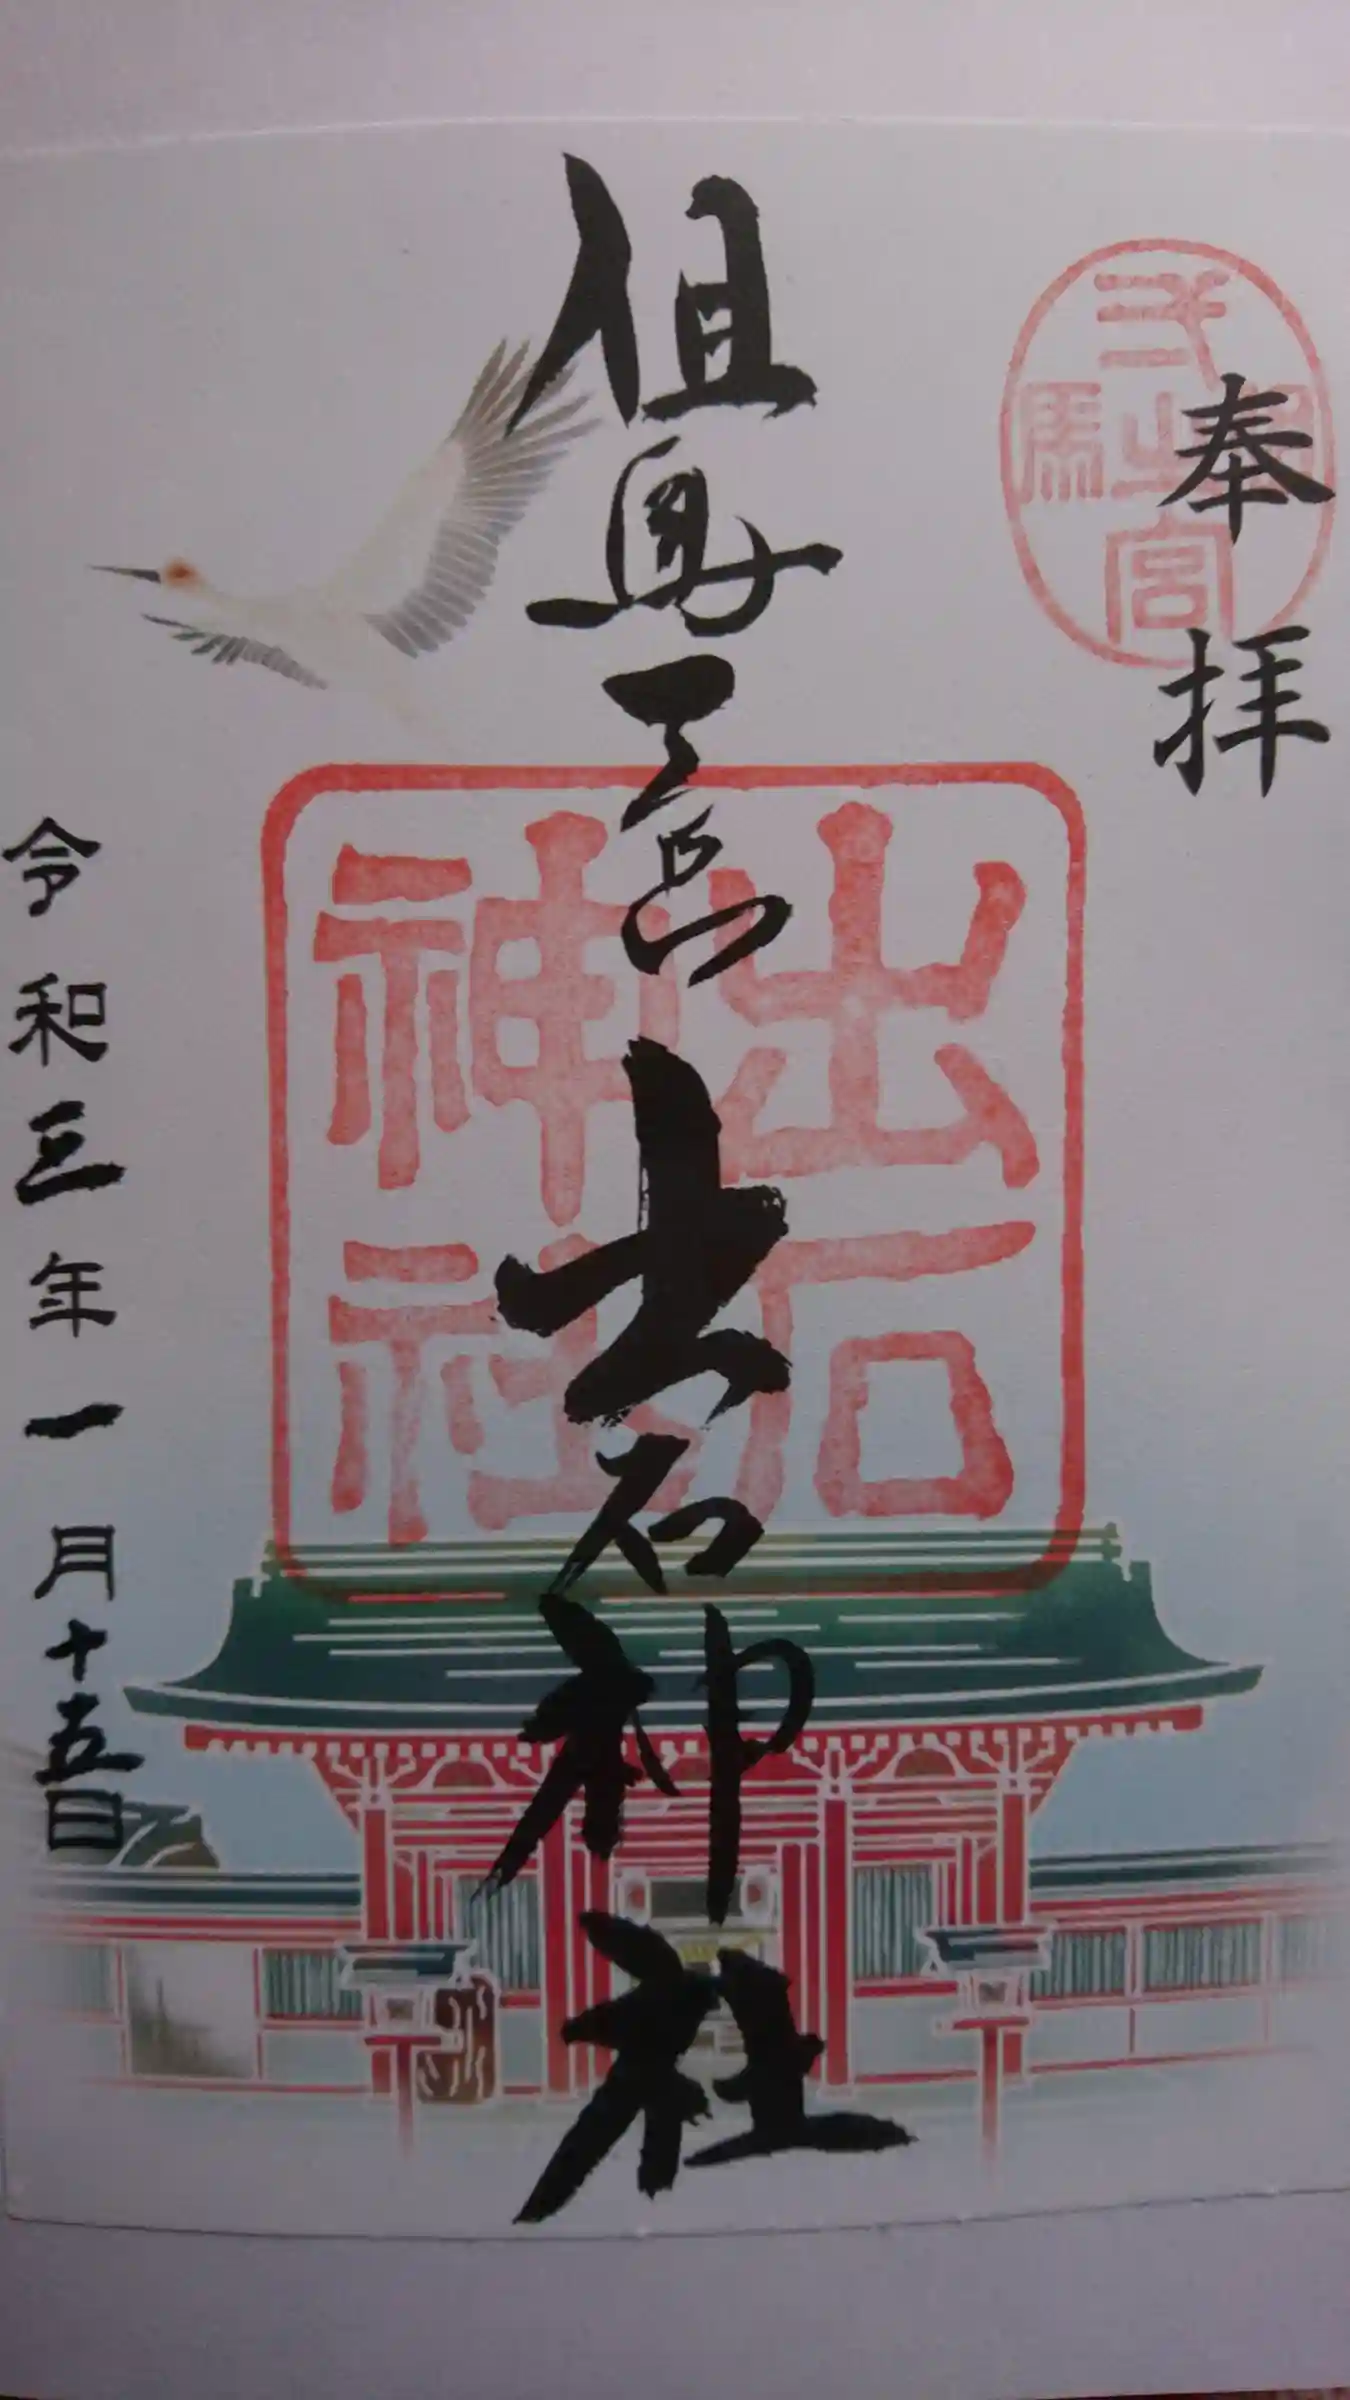 奉拝
但馬
弌之宮
但馬一宮 出石神社
出石
神社
令和三年一月十五日